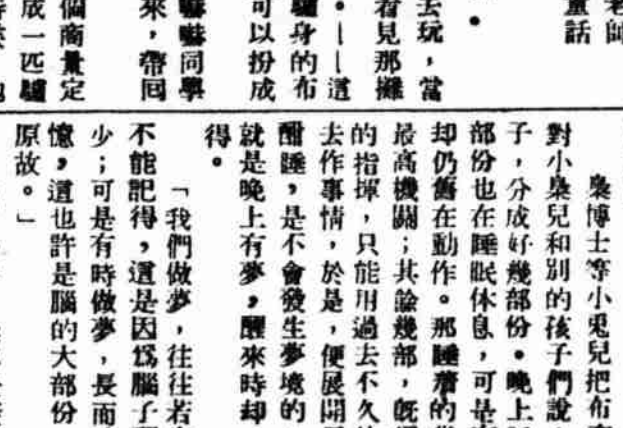 老師
童話
去玩，當
看見那攤
。——這
驢身的布
可以扮成
嚇嚇同學
來，帶回
個商量定
成一匹驢
梟博士等小兎兒把布
對小梟兒和別的孩子們說
子，分成好幾部份。晚上
部份也在睡眠休息，可是
却仍舊在動作。那睡着的
最高機關；其餘幾部，旣
的指揮，只能用過去不久
去作事情，於是，便展開
酣睡，是不會發生夢境的
就是晚上有夢，醒來時却
得。
「我們做夢，往往若
不能記得，這是因爲腦子
少；可是有時做夢，長而
憶，這也許是腦的大部份
原故。」